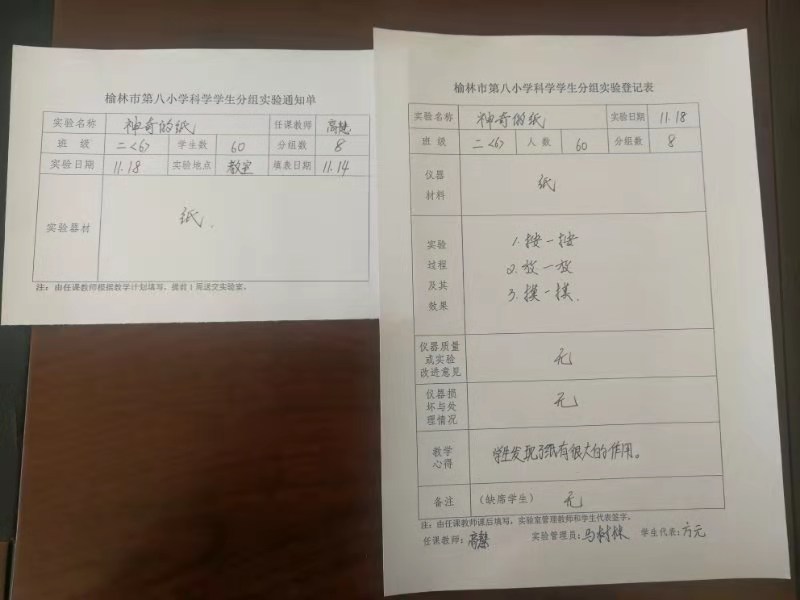 榆林市第八小学科学学生分组实验通知单
实验名称 神奇的纸 任课教师
班 级 二<6> 学生数 60 分组数 8
实验日期 11.18 实验地点 教室 填表日期 11.14
实验器材 纸.
注：由任课教师根据教学计划填写，提前1周送交实验室。
榆林市第八小学科学学生分组实验登记表
实验名称 神奇的纸 实验日期 11.18
班 级 二<6> 人 数 60 分组数 8
仪器
材料
纸
实验
过程
及其
效果
1.按一按
2.放一放
3.摸一摸.
仪器质量
或实验
改进意见
无
仪器损
坏与处
理情况
无
教学
心得
学生发现了纸有很大的作用。
备注 (缺席学生) 无
注：由任课教师课后填写，实验室管理教师和学生代表签字。
任课教师: 实验管理员:马树林 学生代表:方元